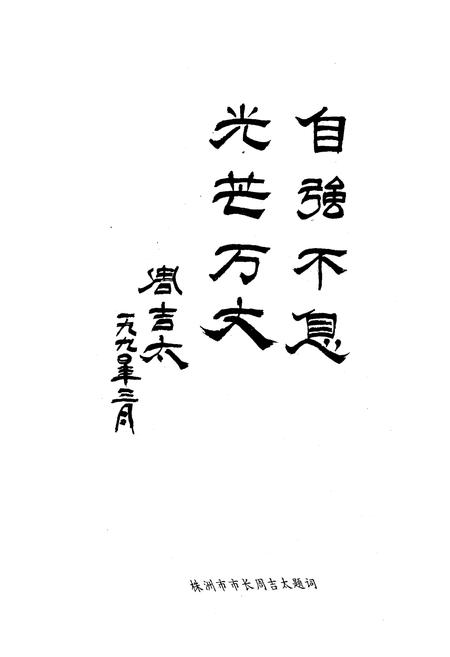 自強不息
光芒万丈
周吉太
一九九〇年三月
株洲市市长周吉太题词